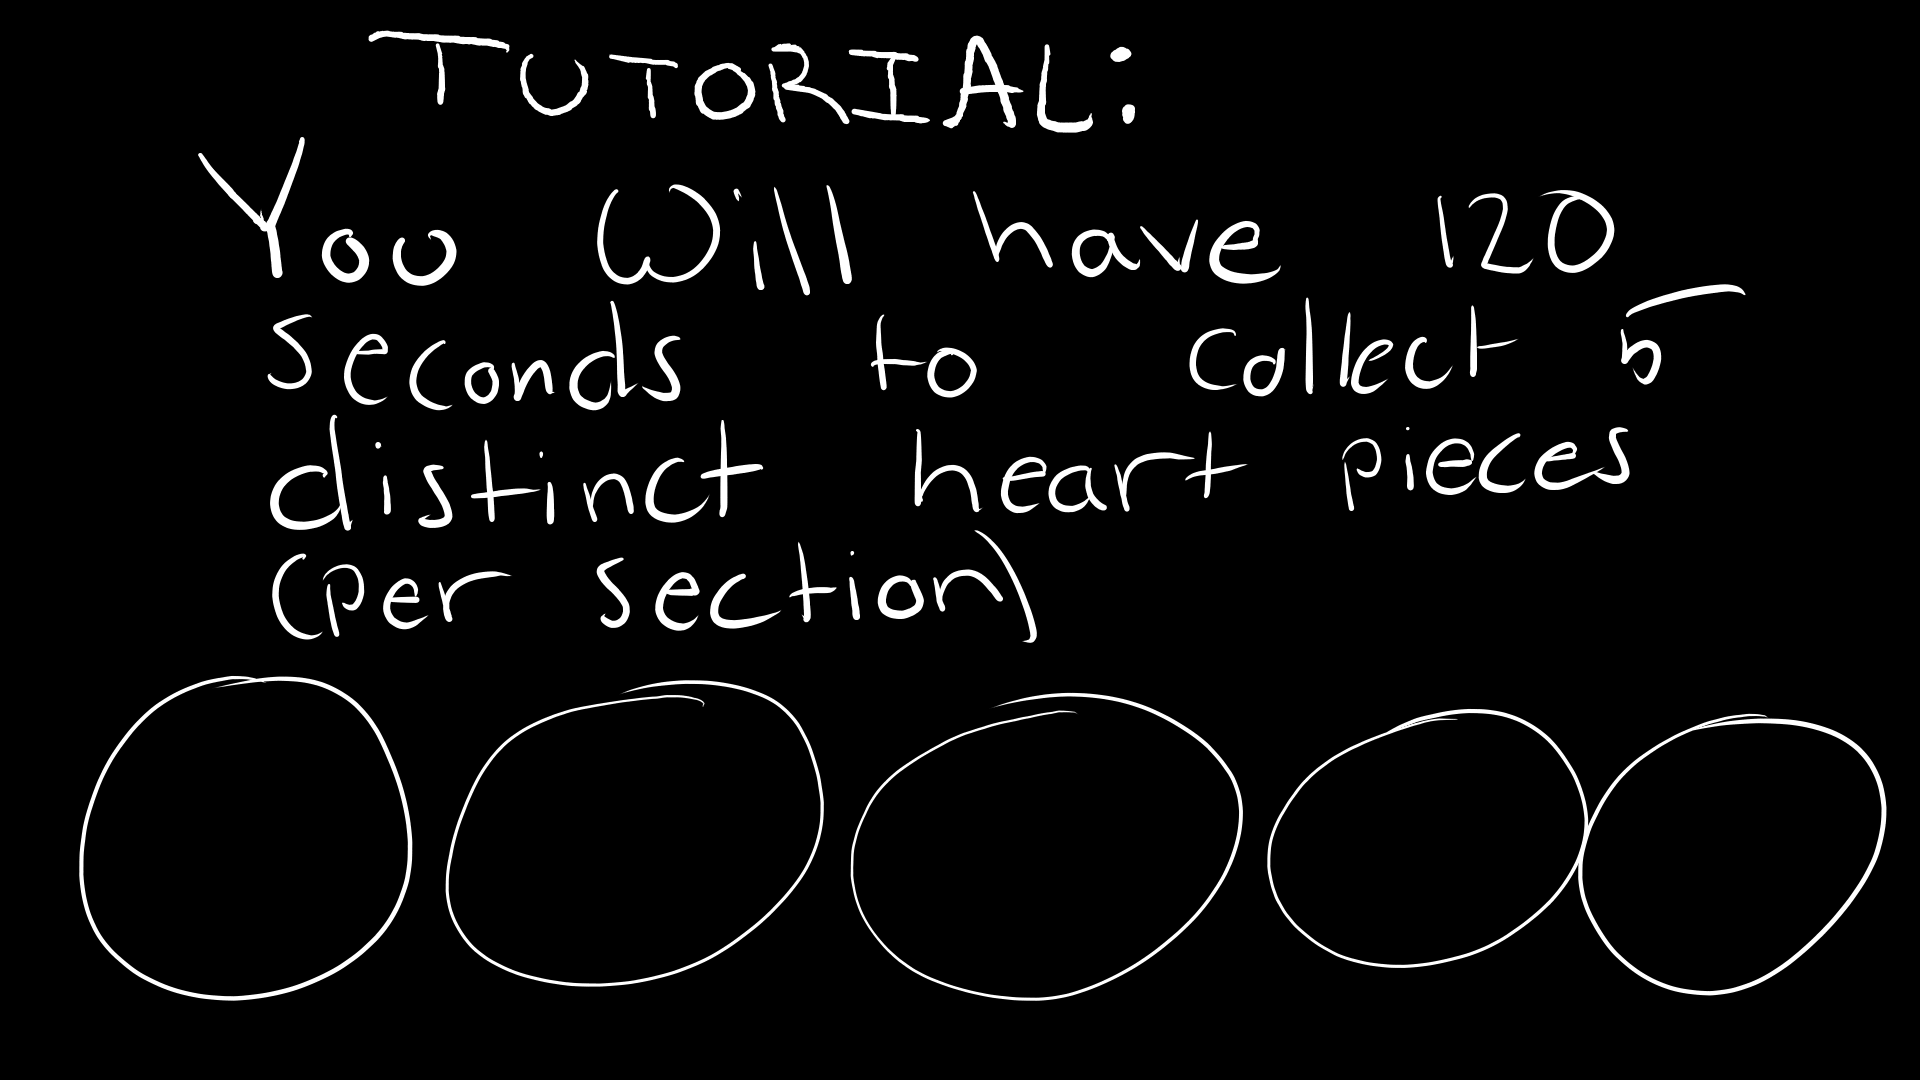 TUTORIAL:
You will have 120
seconds to collect 5
distinct heart pieces
(per section)